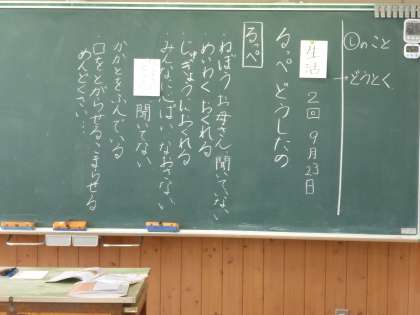 ①のこと
→どうとく
生活 2回 9月23日
るっぺ どうしたの
るっぺ
・ねぼう お母さん 聞いていない
・めいわく おくれる
・じゅぎょうにおくれる
・みんなに心ぱい なおさない
聞いてない
・かかとをふんでいる
・口をとがらせる。こまらせる
めんどくさい…